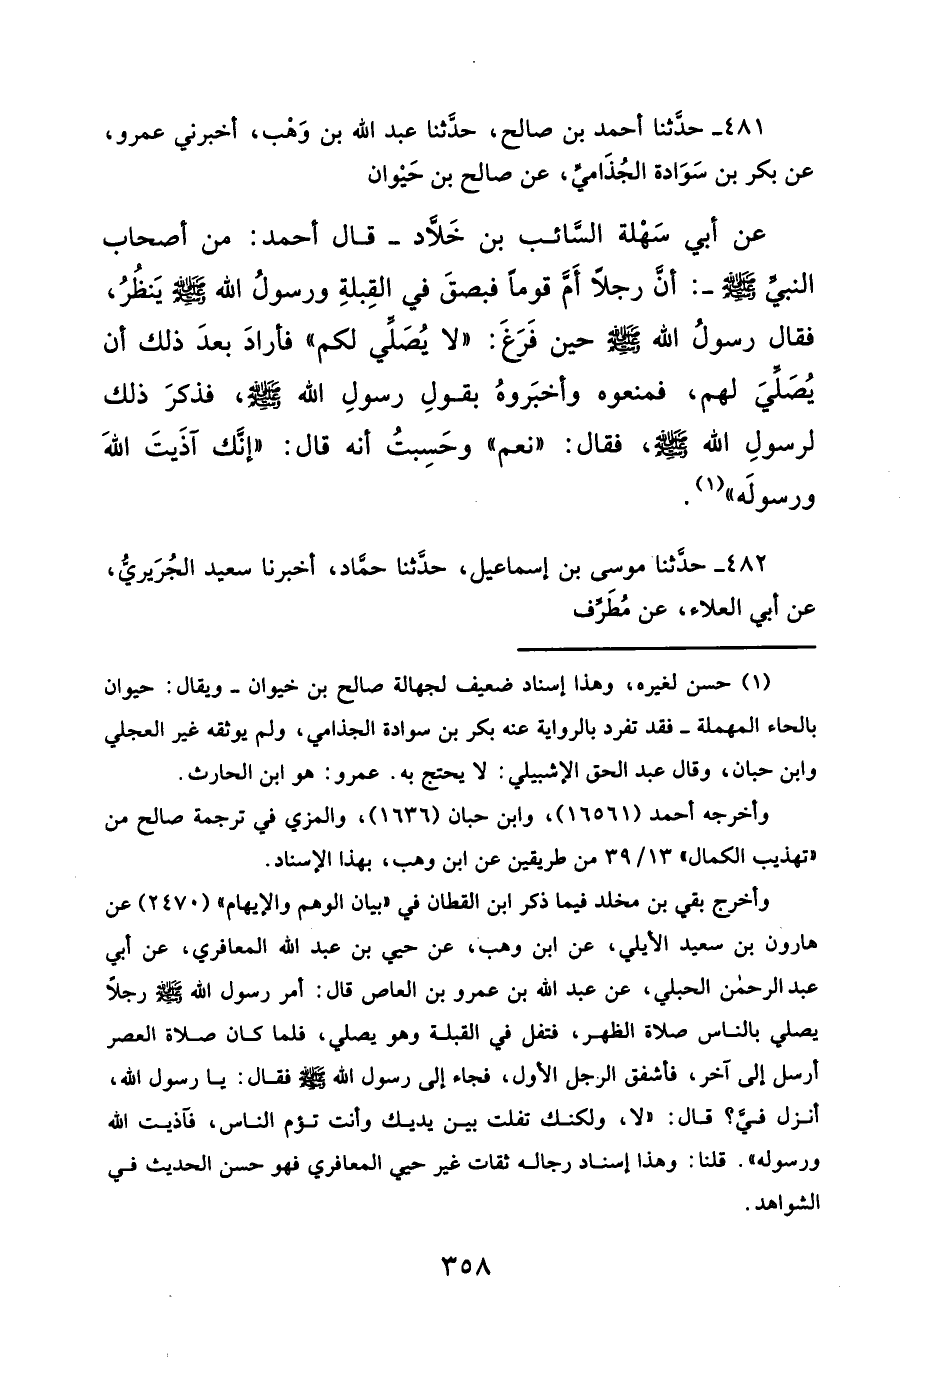 ٤٨١ـ حدَّثنا أحمد بن صالح، حدَّثنا عبد الله بن وَهْب، أخبرني عمرو،
عن بكر بن سَوَادة الجُذَاميِّ، عن صالح بن خَيْوان
عن أبي سَهْلة السَّائب بن خَلَّاد ـ قال أحمد: من أصحاب
النبيِّ ﷺ ـ: أنَّ رجلاً أَمَّ قوماً فبصقَ في القِبلةِ ورسولُ الله ﷺ يَنظُرُ،
فقال رسولُ الله ﷺ حين فَرَغَ: «لا يُصَلِّي لكم» فأرادَ بعدَ ذلك أن
يُصَلِّيَ لهم، فمنعوه وأخبَروهُ بقولِ رسولِ الله ﷺ، فذكرَ ذلك
لرسولِ الله ﷺ، فقال: «نعم» وحَسِبتُ أنه قال: «إنَّك آذَيتَ اللهَ
ورسولَه»(١).
٤٨٢ـ حدَّثنا موسى بن إسماعيل، حدَّثنا حمَّاد، أخبرنا سعيد الجُرَيريُّ،
عن أبي العلاء، عن مُطَرِّف
(١) حسن لغيره، وهذا إسناد ضعيف لجهالة صالح بن خيوان ـ ويقال: حيوان
بالحاء المهملة ـ فقد تفرد بالرواية عنه بكر بن سوادة الجذامي، ولم يوثقه غير العجلي
وابن حبان، وقال عبد الحق الإشبيلي: لا يحتج به. عمرو: هو ابن الحارث.
وأخرجه أحمد (١٦٥٦١)، وابن حبان (١٦٣٦)، والمزي في ترجمة صالح من
«تهذيب الكمال» ١٣/ ٣٩ من طريقين عن ابن وهب، بهذا الإسناد.
وأخرج بقي بن مخلد فيما ذكر ابن القطان في «بيان الوهم والإيهام» (٢٤٧٠) عن
هارون بن سعيد الأيلي، عن ابن وهب، عن حيي بن عبد الله المعافري، عن أبي
عبد الرحمٰن الحبلي، عن عبد الله بن عمرو بن العاص قال: أمر رسول الله ﷺ رجلاً
يصلي بالناس صلاة الظهر، فتفل في القبلة وهو يصلي، فلما كان صلاة العصر
أرسل إلى آخر، فأشفق الرجل الأول، فجاء إلى رسول الله ﷺ فقال: يا رسول الله،
أنزل فيَّ؟ قال: «لا، ولكنك تفلت بين يديك وأنت تؤم الناس، فآذيت الله
ورسوله». قلنا: وهذا إسناد رجاله ثقات غير حيي المعافري فهو حسن الحديث في
الشواهد.
٣٥٨